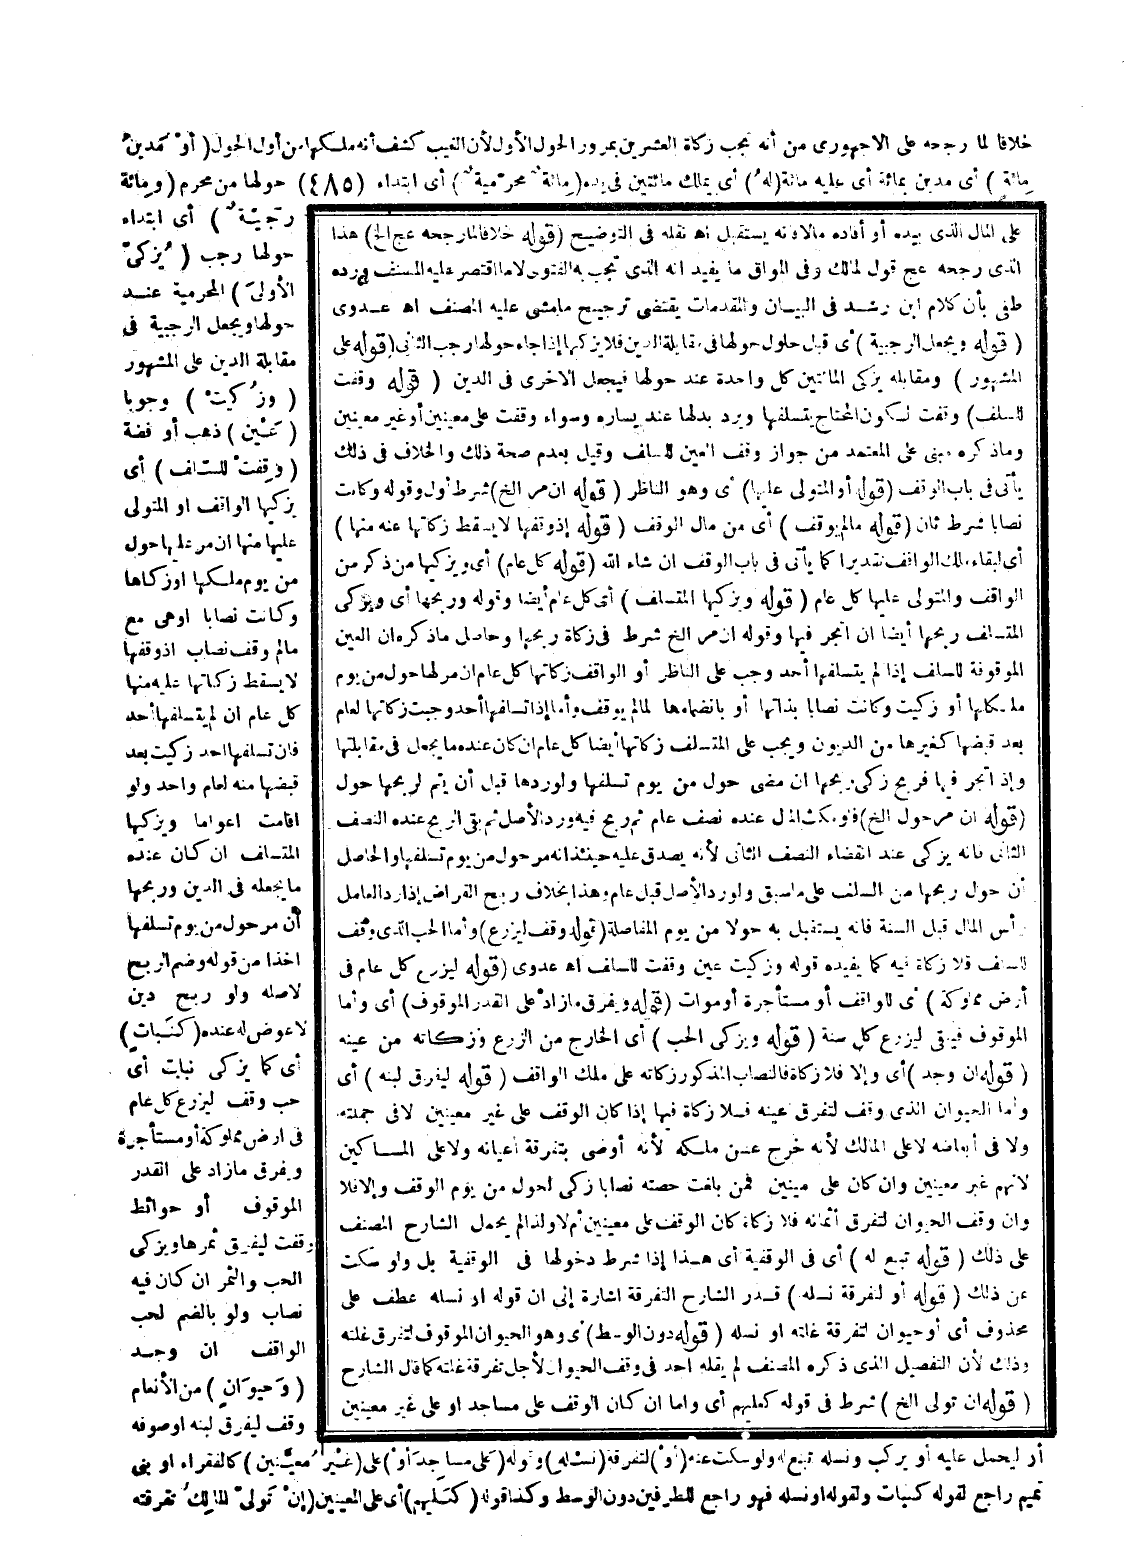 خلافا لما رجحه على الاجهورى من أنه تجب زكاة العشرين بمرور الحول الأول لأن الغيب كشف أنه ملكها من أول الحول (أو كمدين
بمائة) أى مدين بمائة أى عليه مائة (له) أى يملك مائتين فى يده (مائة محرمية) أى ابتداء (٤٨٥) حولها من محرم (ومائة
رجبية) أى ابتداء
حولها رجب (يزكى
الأولى) المحرمية عند
حولها ويجعل الرجبية فى
مقابلة الدين على المشهور
(وزكيت) وجوبا
(عين) ذهب أو فضة
(وقفت للسلف) أى
يزكيها الواقف او المتولى
عليها منها ان مر عليها حول
من يوم ملكها او زكاها
وكانت نصابا او هى مع
مالم وقف نصاب اذ وقفها
لا يسقط زكاتها عليه منها
كل عام ان لم يتسلفها أحد
فان تسلفها احد زكيت بعد
قبضها منه لعام واحد ولو
اقامت اعواما ويزكيها
المتسلف ان كان عنده
ما يجعله فى الدين وربحها
أن مر حول من يوم تسلفها
اخذا من قوله وضم الربح
لاصله ولو ربح دين
لا عوض له عنده (كنبات)
أى كما يزكى نبات أى
حب وقف ليزرع كل عام
فى ارض مملوكة أو مستأجرة
ويفرق مازاد على القدر
الموقوف أو حوائط
وقفت ليفرق ثمرها ويزكى
الحب والثمر ان كان فيه
نصاب ولو بالضم لحب
الواقف ان وجد
(وحيوان) من الأنعام
وقف ليفرق لبنه اوصوفه
على المال الذى بيده أو أفاده مالا فانه يستقبل اهـ نقله فى التوضيح (قوله خلافا لما رجحه عج الخ) هذا
الذى رجحه عج قول لمالك وفى المواق ما يفيد انه الذى تجب به الفتوى لا ما اقتصر عليه المصنف ورده
طفى بأن كلام ابن رشد فى البيان والمقدمات يقتضى ترجيح مامشى عليه المصنف اهـ عدوى
(قوله ويجعل الرجبية) أى قبل حلول حولها فى مقابلة الدين فلا يزكيها إذا جاء حولها رجب الثانى (قوله على
المشهور) ومقابله يزكى المائتين كل واحدة عند حولها فيجعل الاخرى فى الدين (قوله وقفت
للسلف) وقفت لكون المحتاج يتسلفها ويرد بدلها عند يساره وسواء وقفت على معينين أو غير معينين
وما ذكره مبنى على المعتمد من جواز وقف العين للسلف وقيل بعدم صحة ذلك والخلاف فى ذلك
يأتى فى باب الوقف (قوله أو المتولى عليها) أى وهو الناظر (قوله ان مر الخ) شرط أول وقوله وكانت
نصابا شرط ثان (قوله مالم يوقف) أى من مال الوقف (قوله إذ وقفها لا يسقط زكاتها عنه منها)
أى لبقاء ملك الواقف تقديرا كما يأتى فى باب الوقف ان شاء الله (قوله كل عام) أى ويزكيها من ذكر من
الواقف والمتولى عليها كل عام (قوله ويزكيها المتسلف) أى كل عام أيضا وقوله وربحها أى ويزكى
المتسلف ربحها أيضا ان اتجر فيها وقوله ان مر الخ شرط فى زكاة ربحها وحاصل ماذكره ان العين
الموقوفة للسلف إذا لم يتسلفها أحد وجب على الناظر أو الواقف زكاتها كل عام ان مر لها حول من يوم
ملكها أو زكيت وكانت نصابا بذاتها أو بانضمامها لمالم يوقف وأما إذا تسلفها أحد وجبت زكاتها لعام
بعد قبضها كغيرها من الديون ويجب على المتسلف زكاتها أيضا كل عام ان كان عنده ما يجعل فى مقابلتها
وإذا اتجر فيها فربح زكى ربحها ان مضى حول من يوم تسلفها ولو ردها قبل أن يتم لربحها حول
(قوله ان مر حول الخ) فلو مكث المال عنده نصف عام ثم ربح فيه ورد الأصل ثم بقى الربح عنده النصف
الثانى فانه يزكى عند انقضاء النصف الثانى لأنه يصدق عليه حينئذ انه مر حول من يوم تسلفها والحاصل
أن حول ربحها من السلف على ما سبق ولو رد الأصل قبل عام وهذا بخلاف ربح القراض إذا رد العامل
رأس المال قبل السنة فانه يستقبل به حولا من يوم المفاصلة (قوله وقف ليزرع) وأما الحب الذى وقف
للسلف فلا زكاة فيه كما يفيده قوله وزكيت عين وقفت للسلف اهـ عدوى (قوله ليزرع كل عام فى
أرض مملوكة) أى للواقف أو مستأجرة أو موات (قوله ويفرق مازاد على القدر الموقوف) أى وأما
الموقوف فيبقى ليزرع كل سنة (قوله ويزكى الحب) أى الخارج من الزرع وزكاته من عينه
(قوله ان وجد) أى وإلا فلا زكاة فالنصاب المذكور زكاته على ملك الواقف (قوله ليفرق لبنه) أى
وأما الحيوان الذى وقف لتفرق عينه فلا زكاة فيها إذا كان الوقف على غير معينين لا فى جملته
ولا فى أبعاضه لا على المالك لأنه خرج عن ملكه لأنه أوصى بتفرقة أعيانه ولا على المساكين
لأنهم غير معينين وان كان على معينين فمن بلغت حصته نصابا زكى لحول من يوم الوقف وإلا فلا
وان وقف الحيوان لتفرق أثمانه فلا زكاة كان الوقف على معينين أم لا ولذا لم يحمل الشارح المصنف
على ذلك (قوله تبع له) أى فى الوقفية أى هذا إذا شرط دخولها فى الوقفية بل ولو سكت
عن ذلك (قوله أو لتفرقة نسله) قدر الشارح التفرقة اشارة إلى ان قوله او نسله عطف على
محذوف أى أو حيوان لتفرقة غلته او نسله (قوله دون الوسط) أى وهو الحيوان الموقوف لتفرق غلته
وذلك لأن التفصيل الذى ذكره المصنف لم يقله احد فى وقف الحيوان لأجل تفرقة غلته كما قال الشارح
(قوله ان تولى الخ) شرط فى قوله كعليهم أى واما ان كان الوقف على مساجد او على غير معينين
أو ليحمل عليه أو يركب ونسله تبع له ولو سكت عنه (أو) لتفرقة (نسله) وقوله (على مساجد أو) على (غير معينين) كالفقراء او بنى
تميم راجع لقوله كنبات ولقوله او نسله فهو راجع للطرفين دون الوسط وكذا قوله (كعليهم) أى على المعينين (إن تولى المالك تفرقته